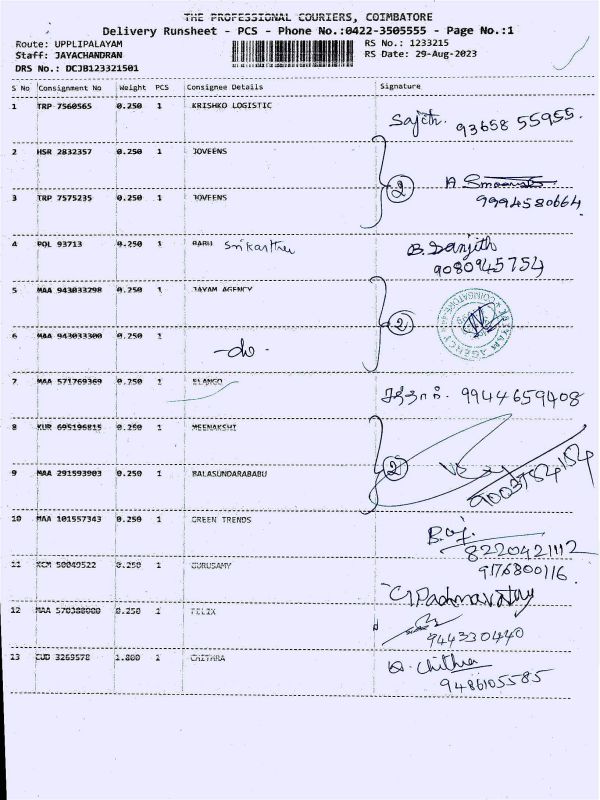 THE PROFESSIONAL COURIERS, COIMBATORE
Delivery Runsheet - PCS - Phone No.:0422-3505555 - Page No.:1
Route: UPPLIPALAYAM RS No.: 1233215
Staff: JAYACHANDRAN RS Date: 29-Aug-2023
DRS No.: DCJB123321501
S No Consignment No Weight PCS Consignee Details Signature
1 TRP 7560565 0.250 1 KRISHKO LOGISTIC
Sajith. 93658 55955.
2 HSR 2832357 0.250 1 JOVEENS
2
3 TRP 7575235 0.250 1 JOVEENS
9994580664
4 POL 93713 0.250 1 BABU Srikanthu B. Sanjith
9080945754
5 MAA 943033298 0.250 1 JAYAM AGENCY
2
6 MAA 943033300 0.250 1
-do-
7 MAA 571769369 0.250 1 ELANGO 9944659408
8 KUR 695196815 0.250 1 MEENAKSHI
2
9 MAA 291593903 0.250 1 BALASUNDARABABU
10 MAA 101557343 0.250 1 GREEN TRENDS
8220421112
11 KCM 50049522 0.250 1 GURUSAMY 9176800116.
12 MAA 570388000 0.250 1 FELIX
944330440
13 CUD 3269578 1.800 1 CHITHRA
Chithra
9486105585